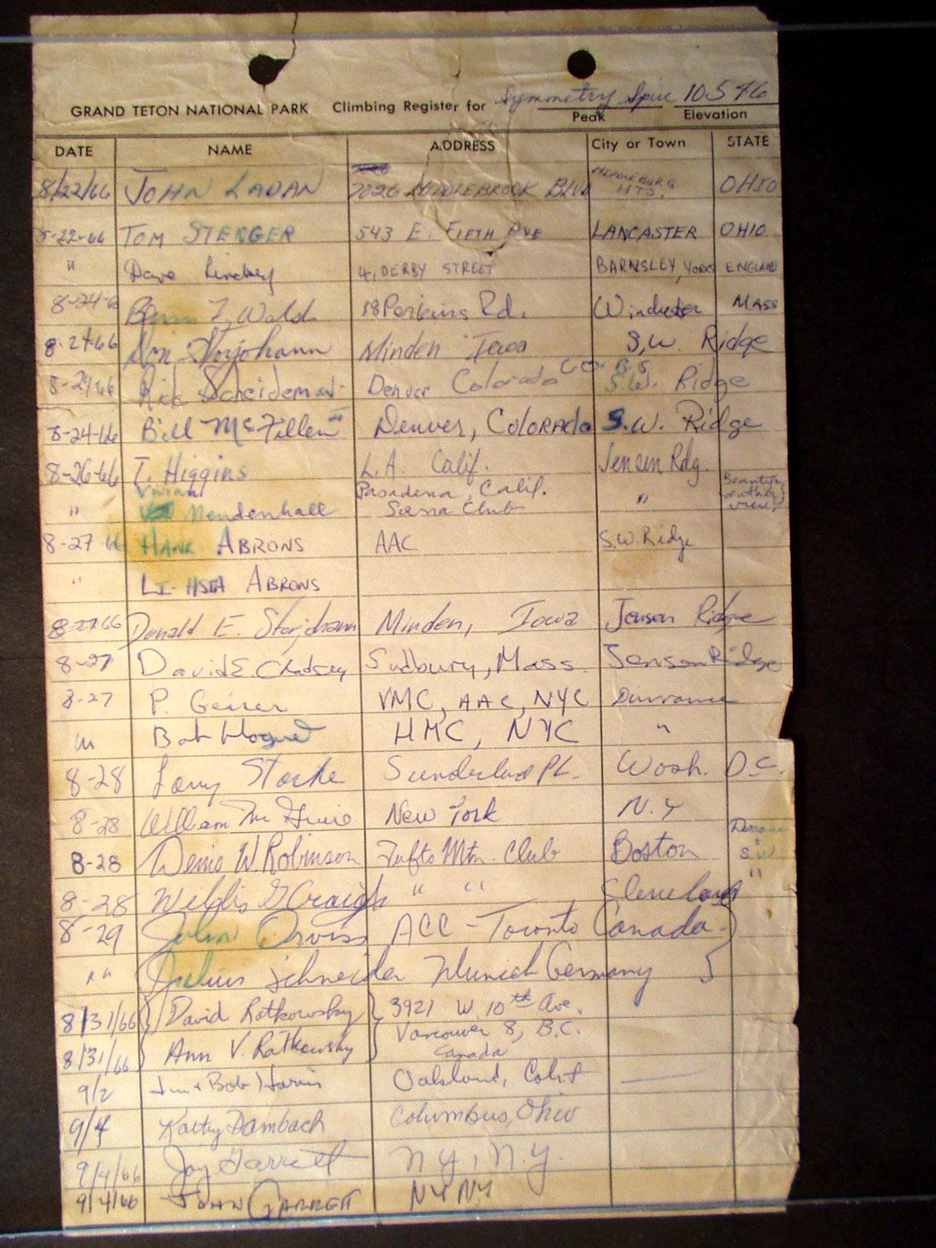 GRAND TETON NATIONAL PARK Climbing Register for Symmetry Spire 10546
Peak Elevation
DATE NAME ADDRESS City or Town STATE
8/22/66 JOHN LADAN 7026 MIDDLEBROOK BLVD MIDDLEBURG HTS. OHIO
8-22-66 TOM STENGER 543 E. FIFTH AVE LANCASTER OHIO
" Dave Lindsey 4, DERBY STREET BARNSLEY YORKS ENGLAND
8-24-6 18 Perkins Rd. Winchester MASS
8-24-66 Don Storjohann Minden Iowa S.W. Ridge
8-24-66 Rick Scheideman Denver Colorado S.W. Ridge
8-24-66 Bill McFillen Denver, COLORADO S.W. Ridge
8-26-66 T. Higgins L.A. Calif. Jensen Rdg.
Vivian Pasadena, Calif. Beautiful
" Mendenhall Sierra Club "
8-27 66 HANK ABRONS AAC S.W. Ridge
" LI-HSIA ABRONS
8-27 66 Donald E. Storjohann Minden, Iowa Jensen Ridge
8-27 David E. Sudbury, Mass. Jenson Ridge
8-27 P. Geiser VMC, AAC, NYC Durrance
Bob HMC, NYC "
8-28 Larry Sunderland PL. Wash. D.C.
8-28 William New York N.Y
8-28 Denis W. Robinson Tufts Mtn. Club Boston S.W
8-28 Willis G Craigh " " Cleveland "
8-29 John Orviss ACC - Toronto Canada
"" Julius Schneider Munich Germany
8/31/66 David Ratkowsky 3921 W. 10th Ave.
Vancouver 8, B.C.
8/31/66 Ann V. Ratkowsky Canada
9/2 Jim & Bob Harris Oakland, Calif
9/4 Kathy Dambach Columbus, Ohio
9/4/66 Jay Garrett N.Y., N.Y.
9/4/66 JOHN GARRETT NY NY